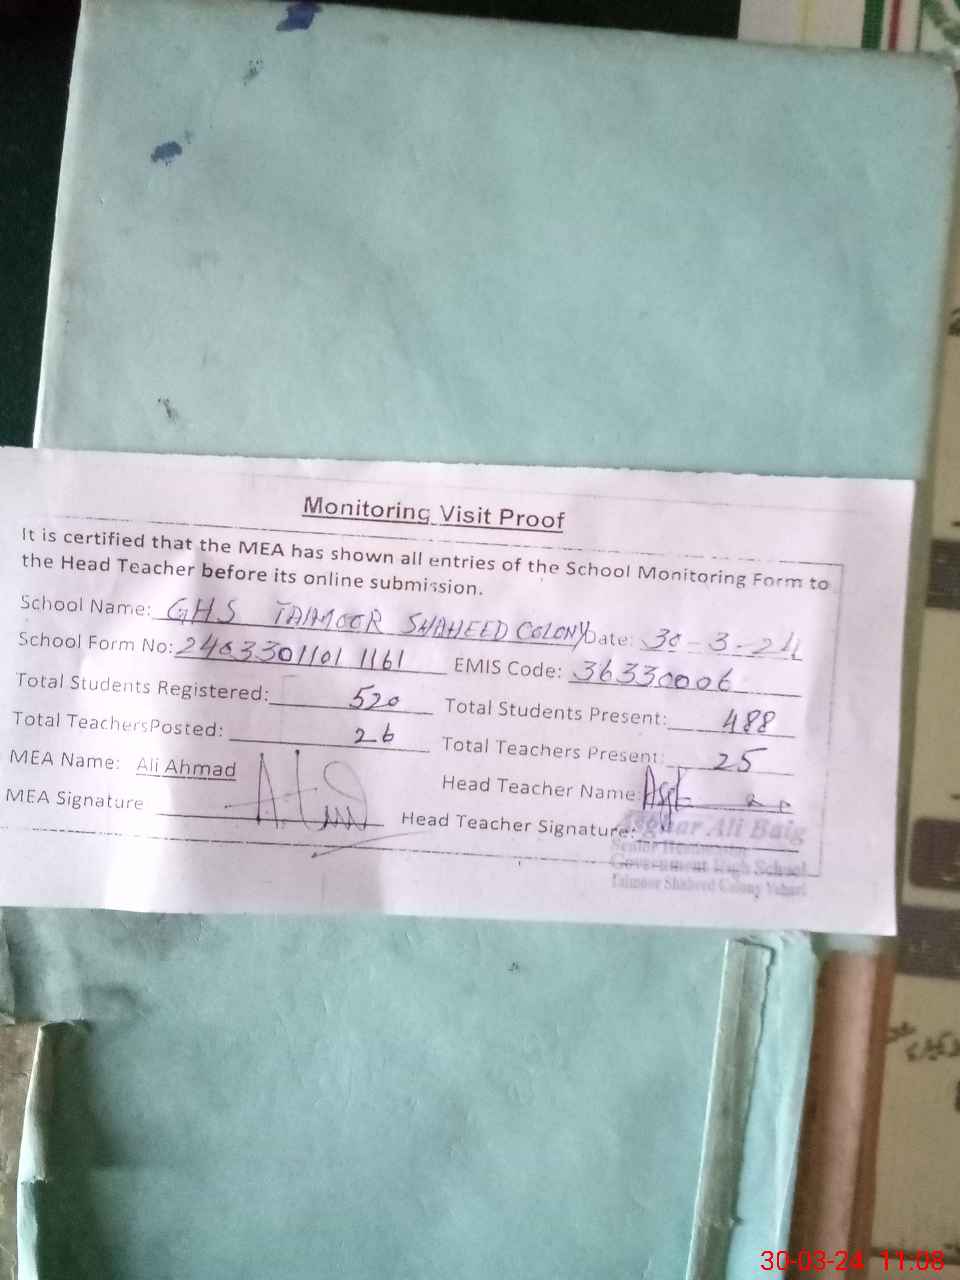 Monitoring Visit Proof
It is certified that the MEA has shown all entries of the School Monitoring Form to
the Head Teacher before its online submission.
School Name: GHS TAIMOOR SHAHEED COLONY Date: 30-3-24
School Form No: 2403301101 1161 EMIS Code: 36330006
Total Students Registered: 520 Total Students Present: 488
Total TeachersPosted: 26 Total Teachers Present: 25
MEA Name: Ali Ahmad Head Teacher Name:
MEA Signature Head Teacher Signature:
Asghar Ali Baig
Senior Headmaster
Government High School
Taimoor Shaheed Colony Vehari
30-03-24 11:08